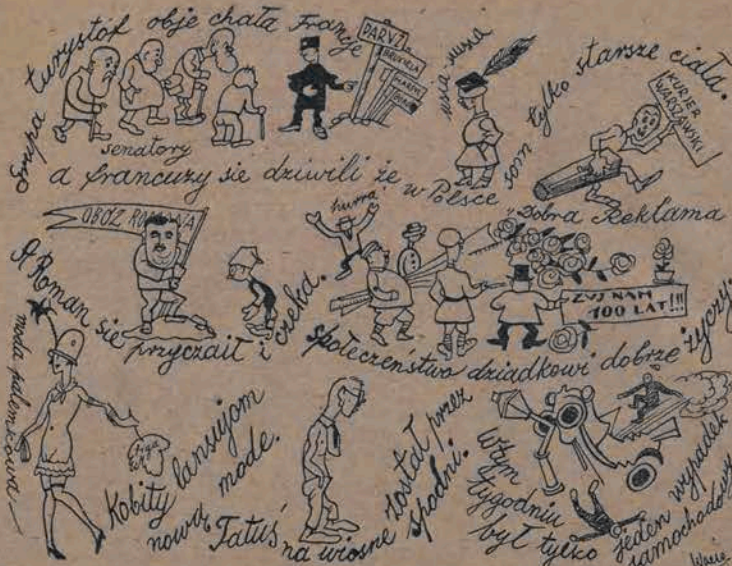 Grupa turystóf obje chała Francje
senatory
PARYŻ
BRUKSELA
a francuzy sie dziwili że w Polsce som tylko starsze ciała.
KURJER WARSZAWSKI
Dobra Reklama
OBÓZ ROMANA
A Roman sie przyczaił i czeka.
hurra
ŻYJ NAM
100 LAT!!!
społeczeństwo dziadkowi dobrze życzy.
moda palemkowa
Kobity lansujom
nową mode.
Tatuś na wiosne został przez spodni.
W tym
tygodniu
był tylko
jeden wypadek
samochodowy